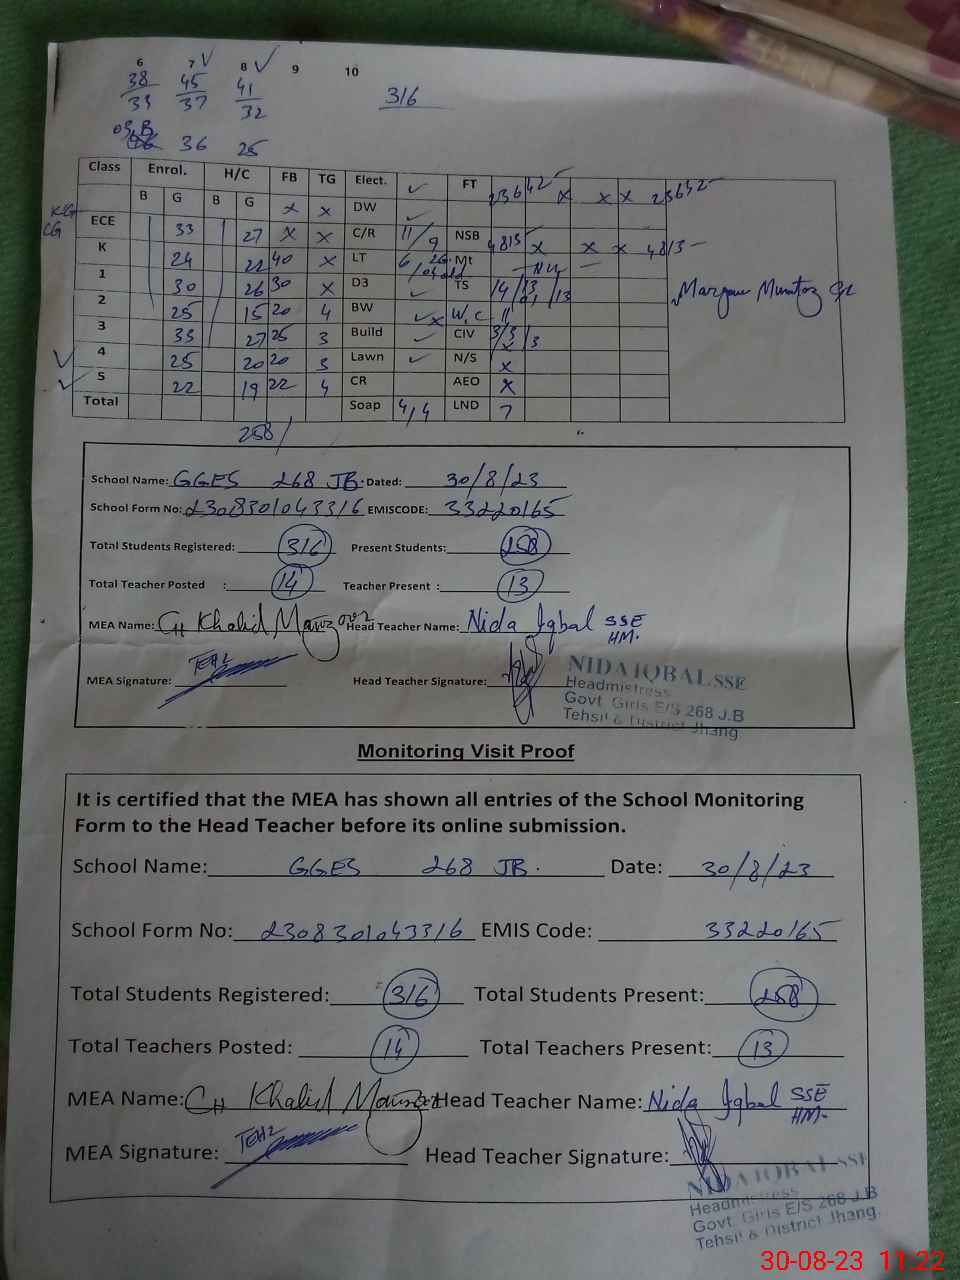 6 7 √ 8 √ 9 10
38 45 41 316
33 37 32
36 25
Class Enrol. H/C FB TG Elect. ✓ FT 23642 x x x 23642
B G B G x x DW ✓
ECE 33 27 x x C/R 11/9 NSB 4813 x x x 4813
K 24 22 40 x LT 6 Mt Nil
1 30 26 30 x D3 ✓ TS 14/13/01/13
2 25 15 20 4 BW ✓ x W.C 11
3 33 27 25 3 Build ✓ CIV 3/3/3
4 25 20 20 3 Lawn ✓ N/S x
5 22 19 22 4 CR AEO x
Total Soap 4,4 LND 7
258/
School Name: GGES 268 JB. Dated: 30/8/23
School Form No: 2308301043316 EMISCODE: 33220165
Total Students Registered: 316 Present Students: 258
Total Teacher Posted : 14 Teacher Present : 13
MEA Name: CH Khalid Head Teacher Name: Nida Iqbal SSE
HM.
MEA Signature: Head Teacher Signature:
NIDA IQBAL SSE
Headmistress
Govt. Girls E/S 268 J.B
Tehsil & District Jhang
Monitoring Visit Proof
It is certified that the MEA has shown all entries of the School Monitoring
Form to the Head Teacher before its online submission.
School Name: GGES 268 JB. Date: 30/8/23
School Form No: 2308301043316 EMIS Code: 33220165
Total Students Registered: 316 Total Students Present: 258
Total Teachers Posted: 14 Total Teachers Present: 13
MEA Name: CH Khalid Head Teacher Name: Nida Iqbal SSE
HM.
MEA Signature: Head Teacher Signature:
NIDA IQBAL SSE
Headmistress
Govt. Girls E/S 268 J.B
Tehsil & District Jhang.
30-08-23 11:22